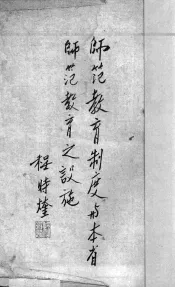 師范教育制度与本省
師范教育之設施
程時煃